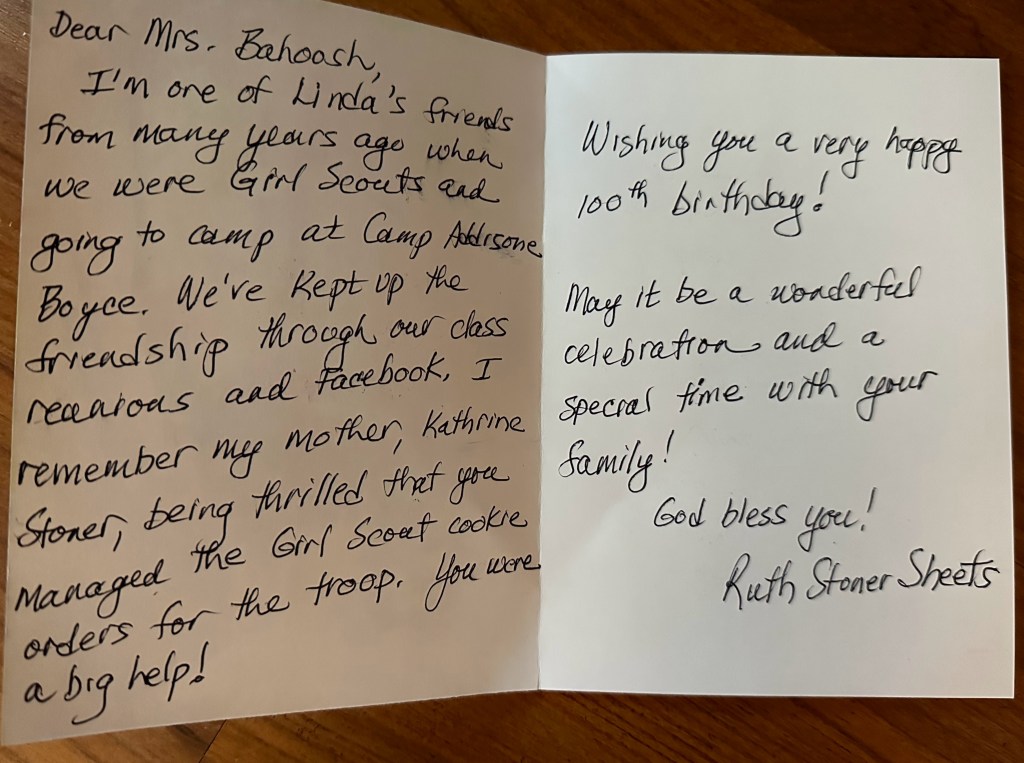 Dear Mrs. Bahoosh,
I'm one of Linda's friends
from many years ago when
we were Girl Scouts and
going to camp at Camp Addisone
Boyce. We've kept up the
friendship through our class
reunions and Facebook. I
remember my mother, Kathrine
Stoner, being thrilled that you
managed the Girl Scout cookie
orders for the troop. You were
a big help!
Wishing you a very happy
100th birthday!
May it be a wonderful
celebration and a
special time with your
family!
God bless you!
Ruth Stoner Sheets